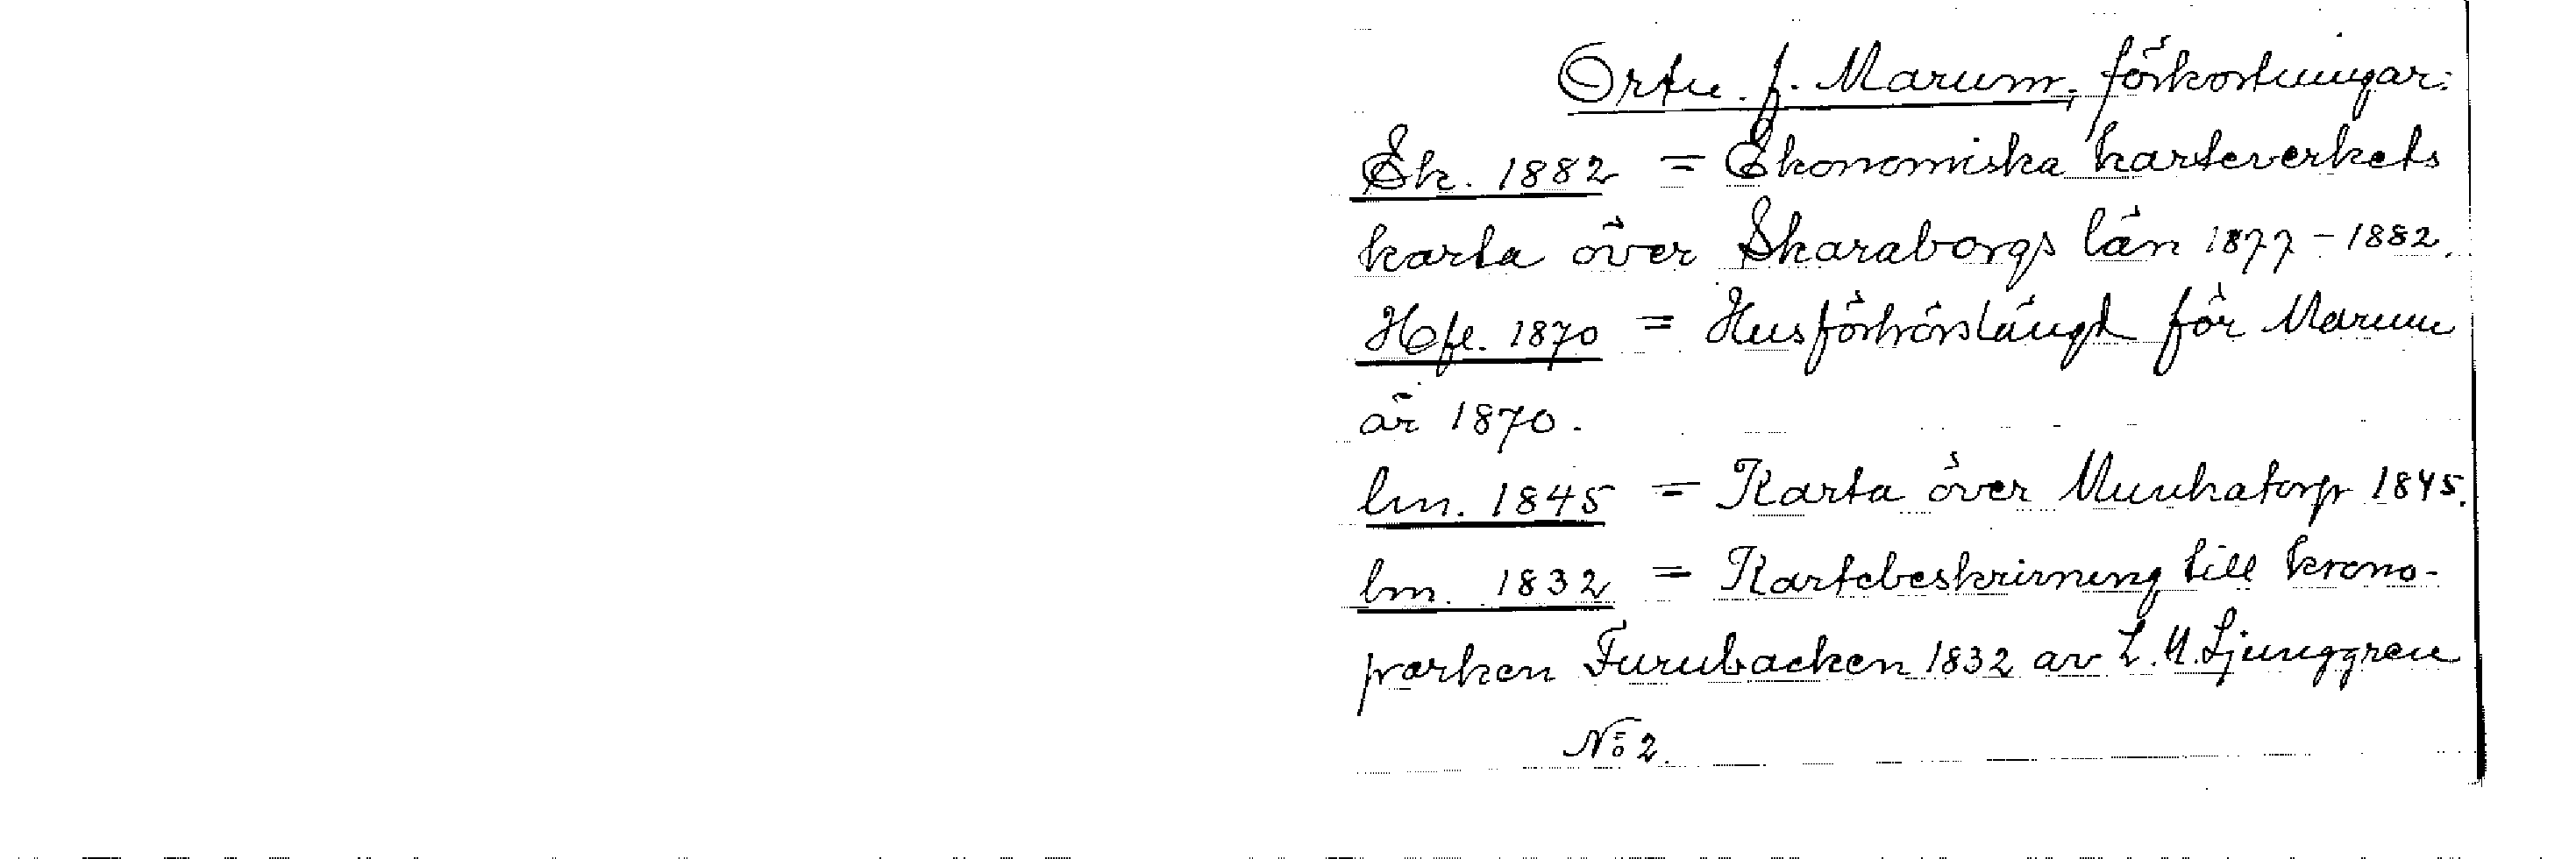 Ortn. f. Marum, förkortningar:
Ek. 1882 = Ekonomiska karteverkets
karta över Skaraborgs län 1877-1882.
Hfl. 1870 = Husförhörslängd för Marum
år 1870.
lm. 1845 = Karta över Munkatorp 1845.
lm. 1832 = Kartebeskrivning till krono-
parken Furubacken 1832 av L. U. Ljunggren
No 2.